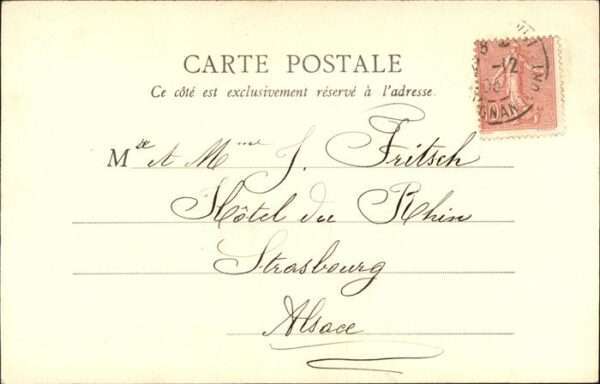 CARTE POSTALE
Ce côté est exclusivement réservé à l'adresse.
8
-12
GNAN
Mlle et Mme J. Fritsch
Hôtel du Rhin
Strasbourg
Alsace